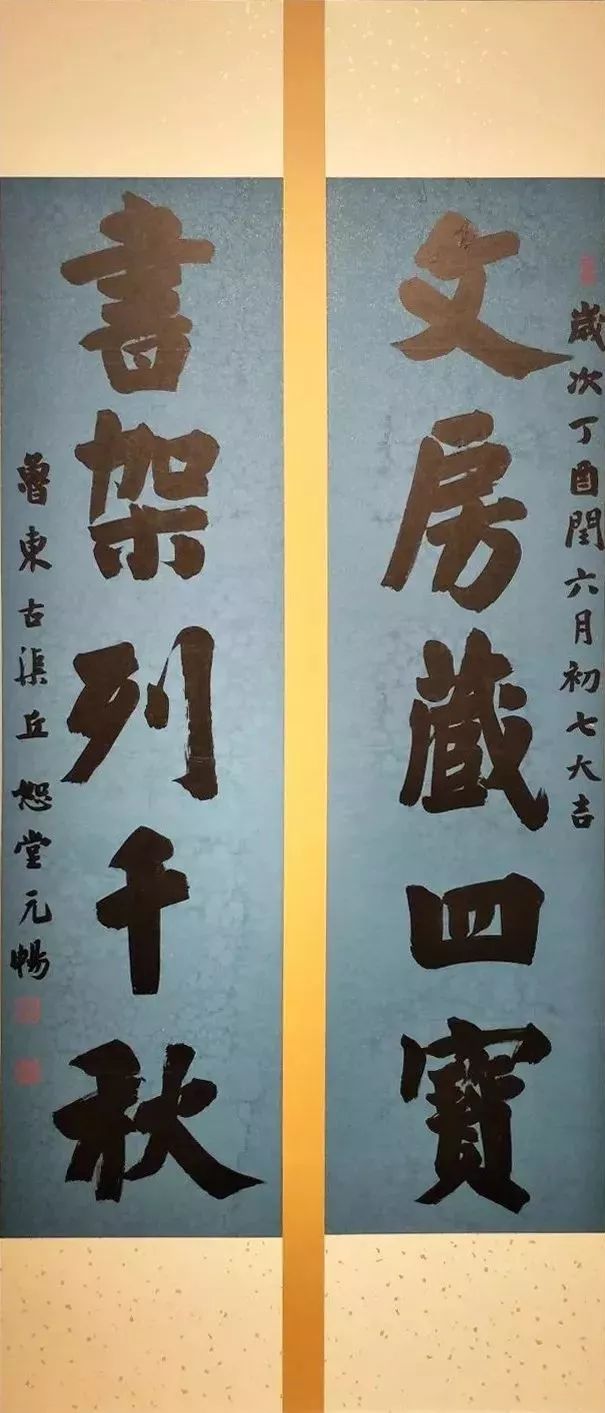 歲次丁酉閏六月初七大吉
文房藏四寶
書架列千秋
魯東古渠丘恕堂元暢